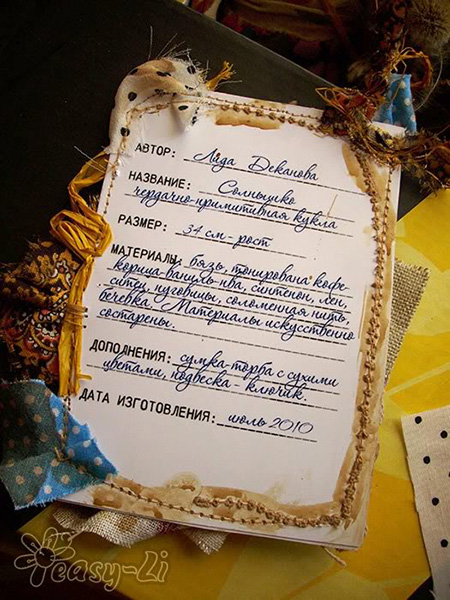 АВТОР: Лида Деканова
НАЗВАНИЕ: Солнышко
чердачно-примитивная кукла
РАЗМЕР: 34 см - рост
МАТЕРИАЛЫ: бязь, тонирована кофе-
корица-ваниль-пва, синтепон, лен,
ситец, пуговицы, соломенная нить,
бечевка. Материалы искусственно
состарены.
ДОПОЛНЕНИЯ: сумка-торба с сухими
цветами, подвеска - ключик.
ДАТА ИЗГОТОВЛЕНИЯ: июль 2010
easy-Li